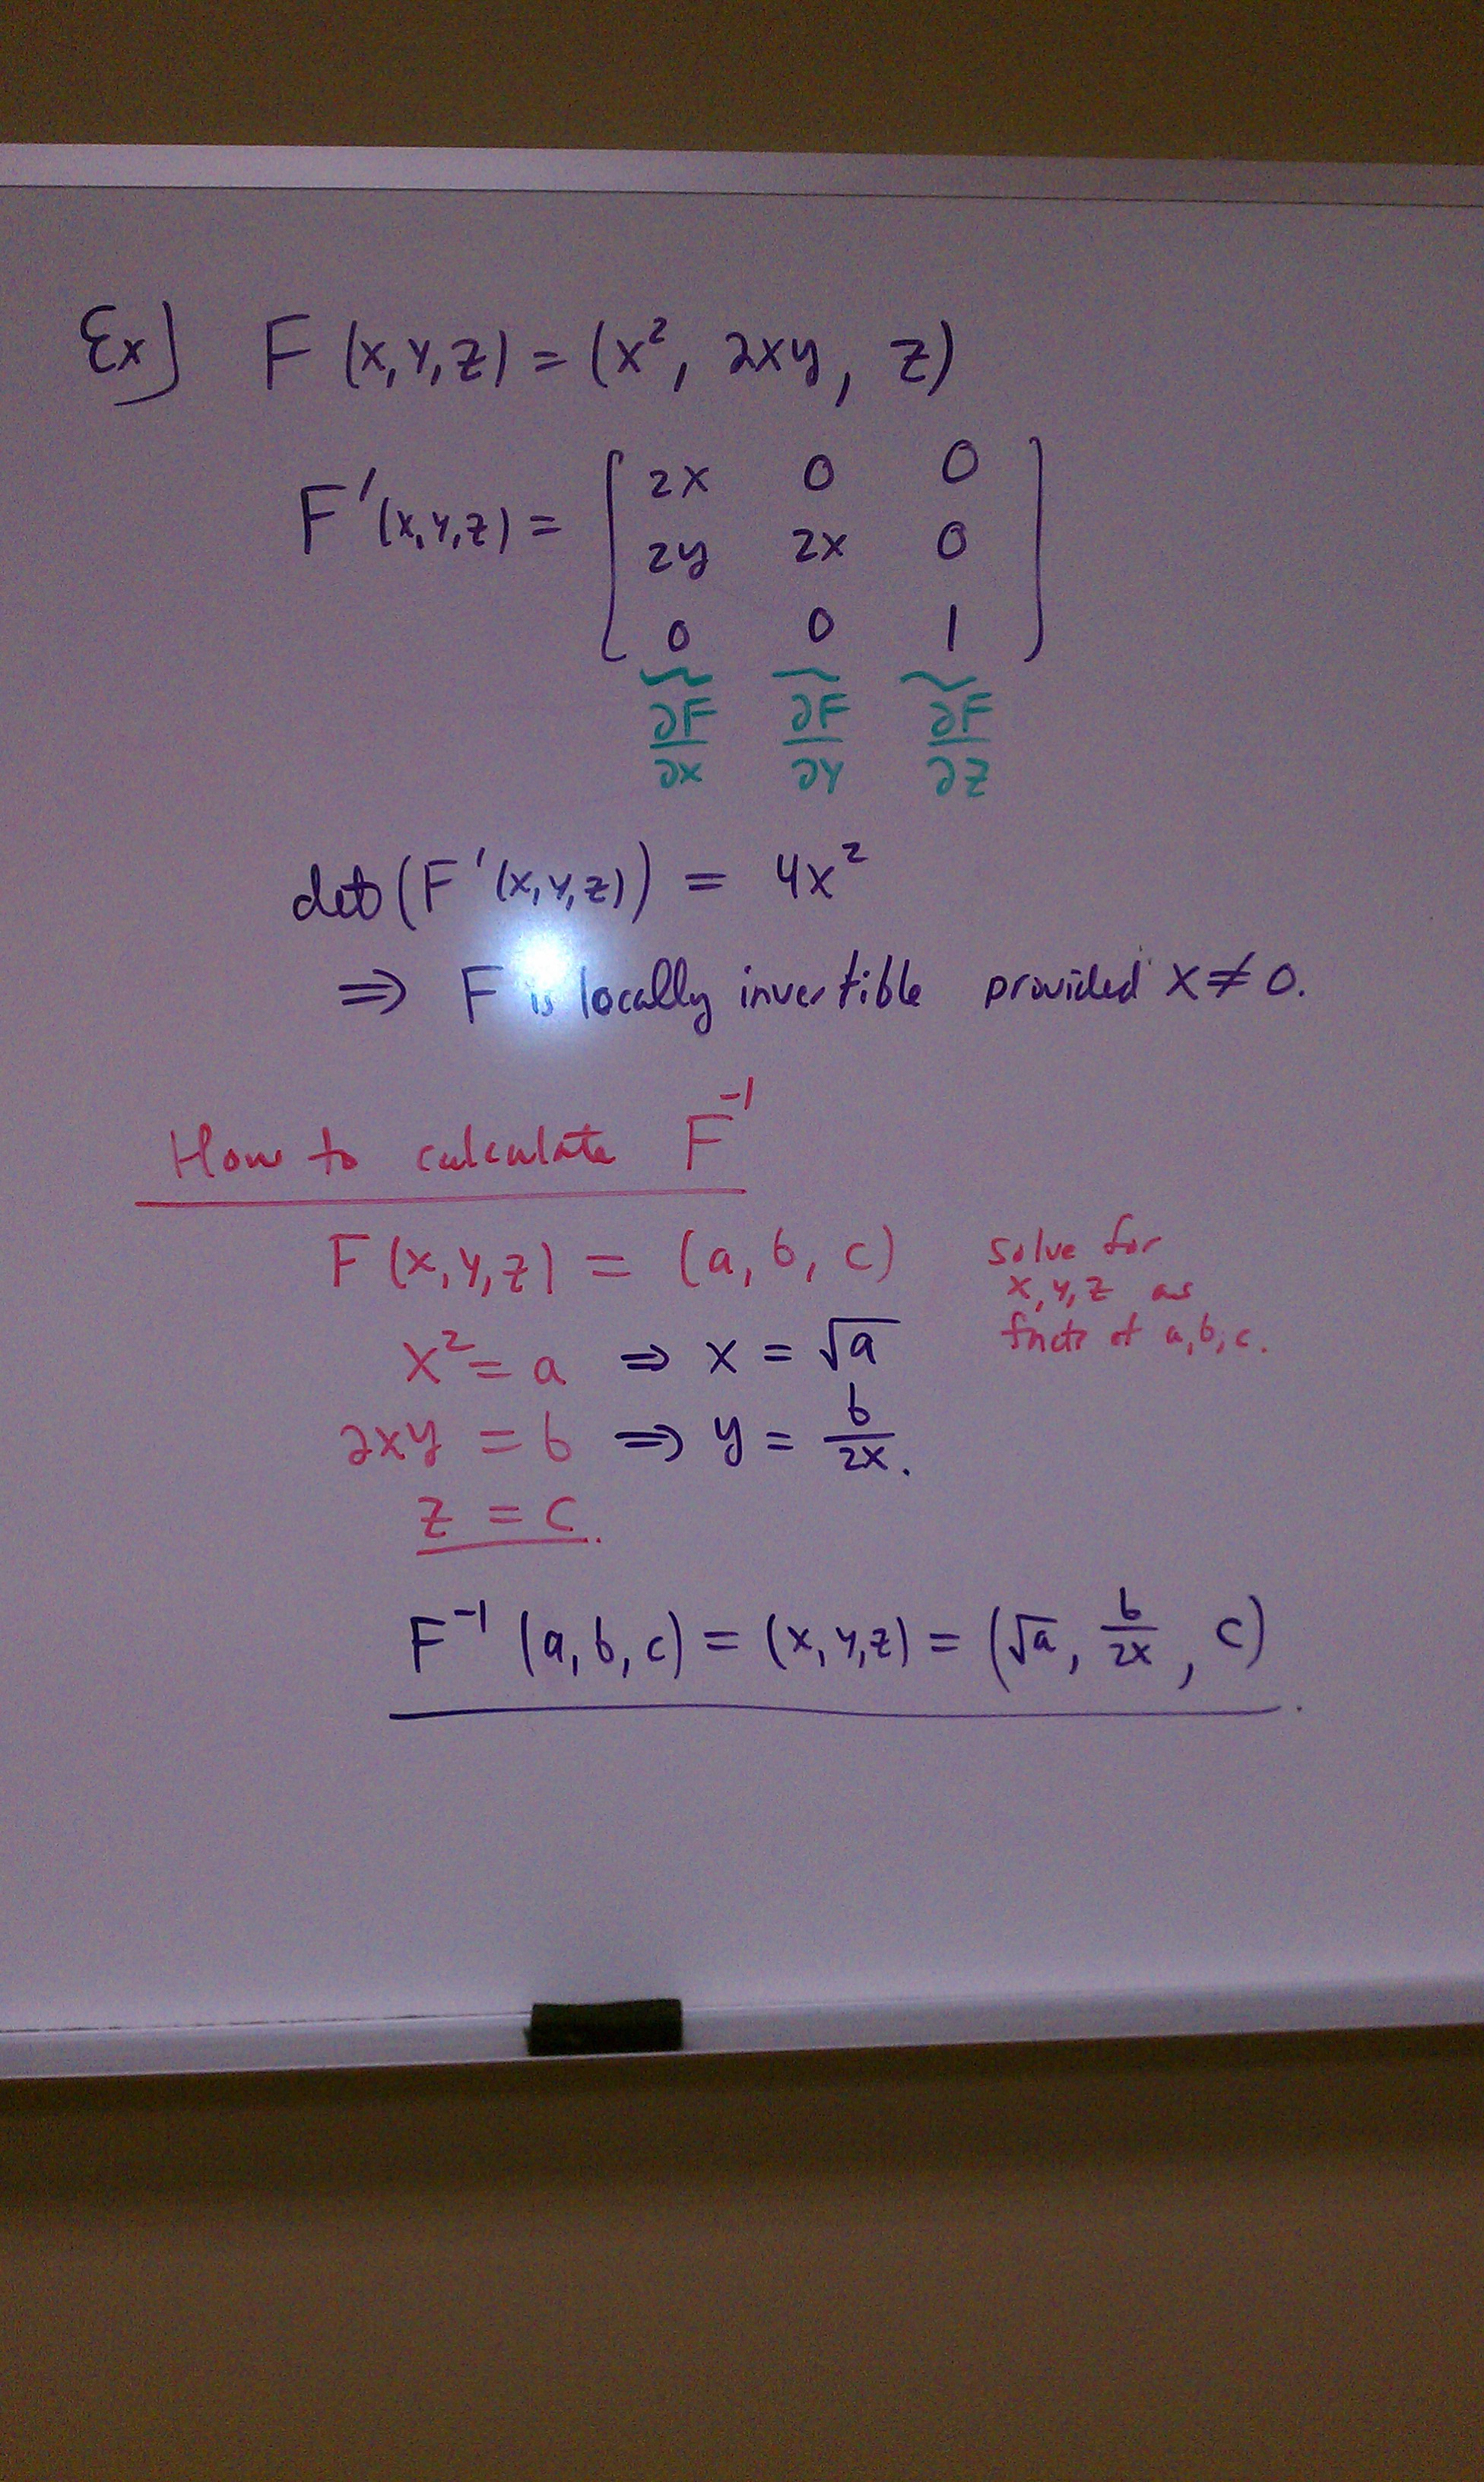 Ex] F (x, y, z) = (x², 2xy, z)
F'(x, y, z) = [ 2x 0 0
2y 2x 0
0 0 1 ]
∂F/∂x ∂F/∂y ∂F/∂z
det (F'(x, y, z)) = 4x²
⇒ F is locally invertible provided x ≠ 0.
How to calculate F⁻¹
F (x, y, z) = (a, b, c) solve for
x, y, z as
x² = a ⇒ x = √a fncts of a, b, c.
2xy = b ⇒ y = b/2x.
z = c.
F⁻¹ (a, b, c) = (x, y, z) = (√a, b/2x, c).